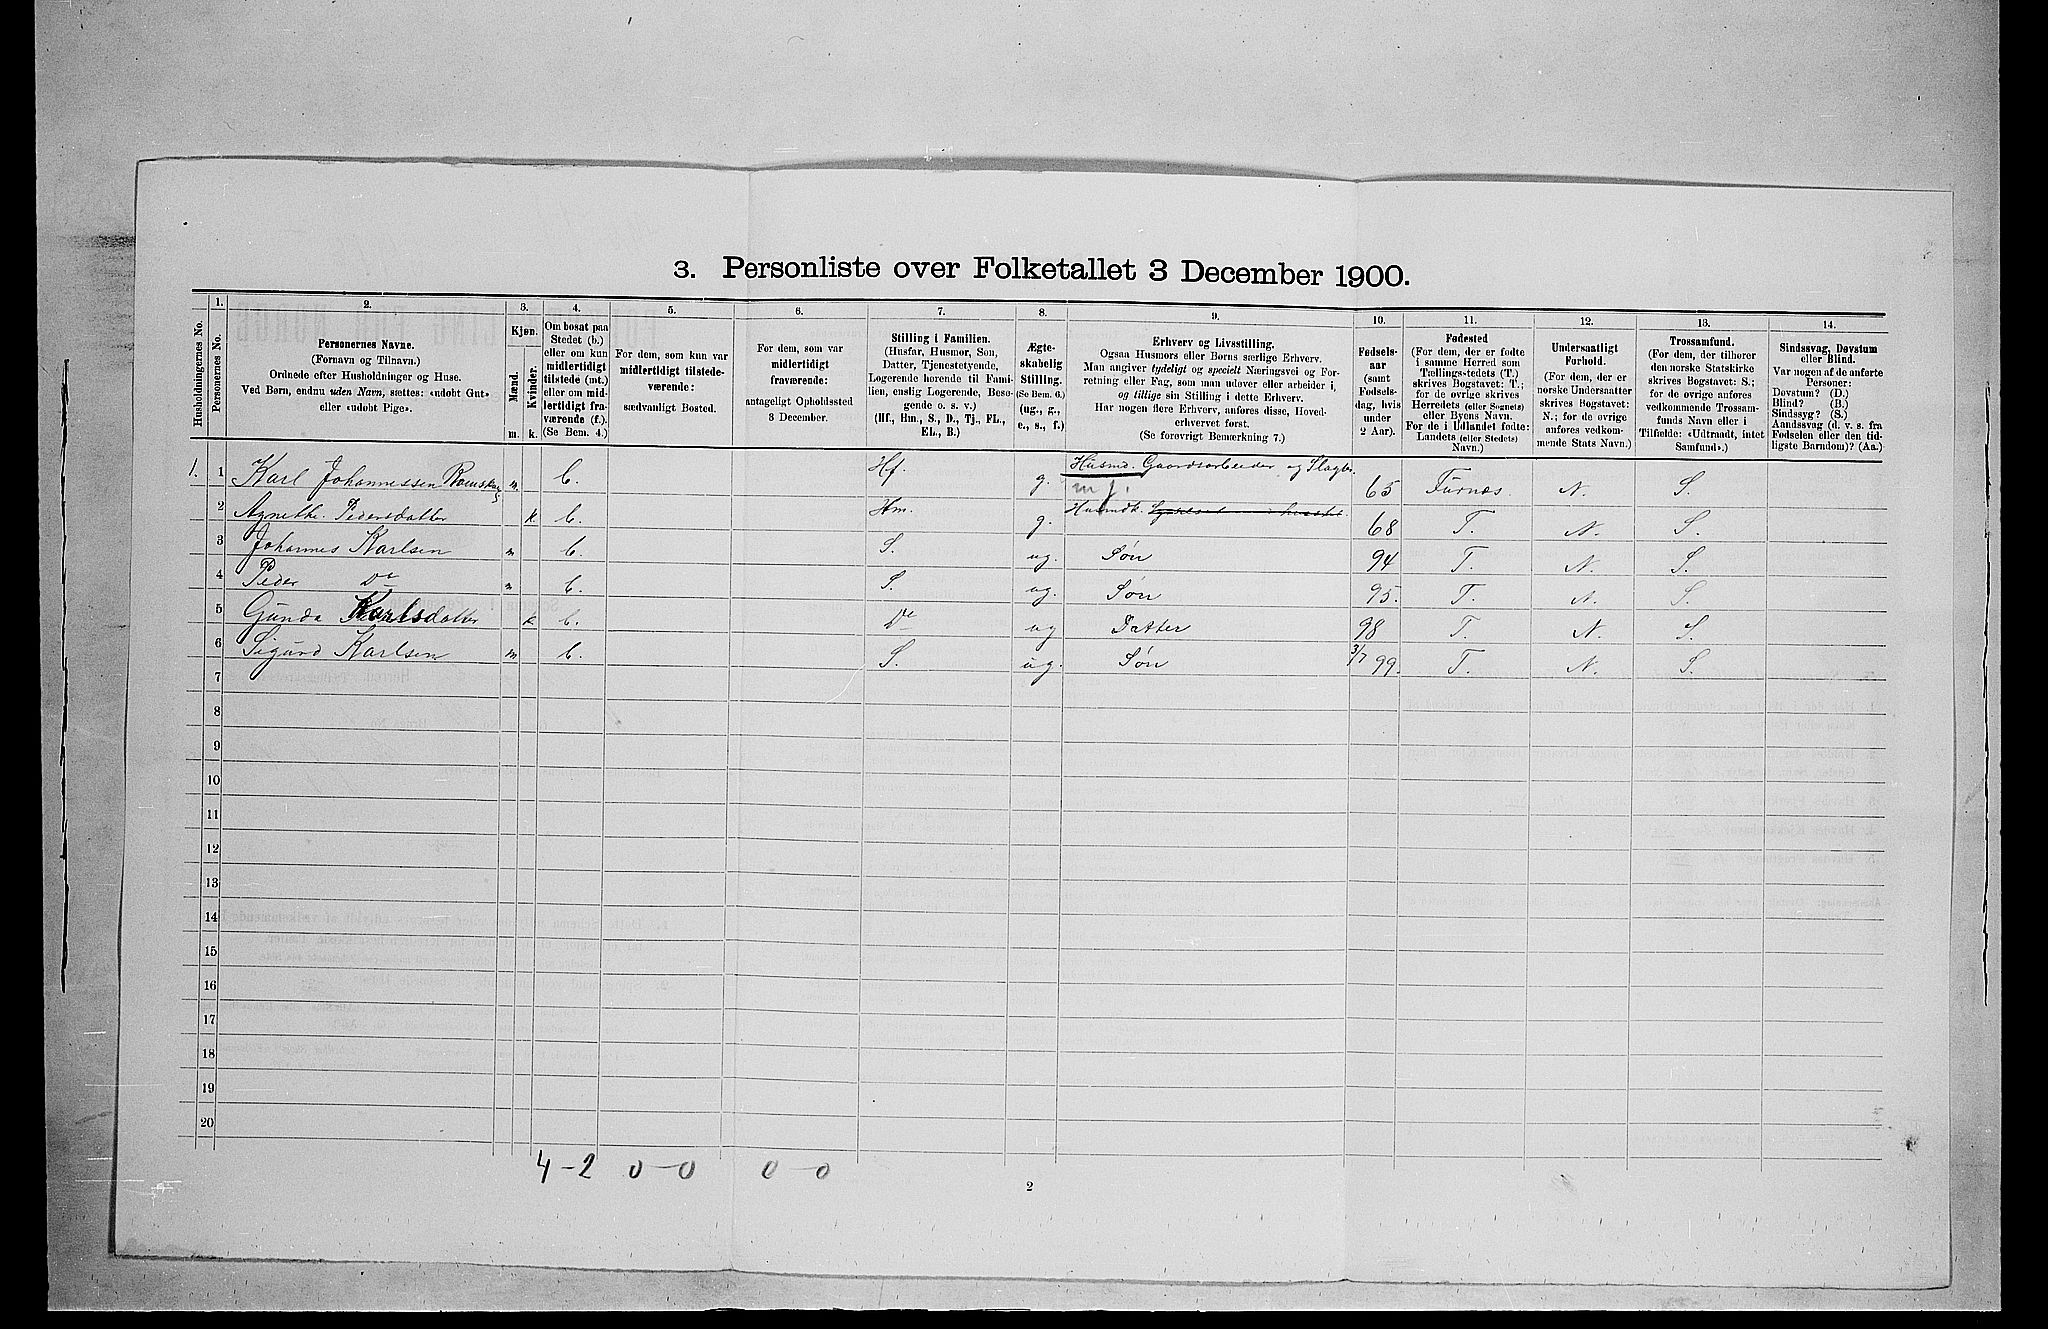 3. Personliste over Folketallet 3 December 1900.
1. 2. 3. 4. 5. 6. 7. 8. 9. 10. 11. 12. 13. 14.
Husholdningernes No.
Personernes No.
Personernes Navne.
(Fornavn og Tilnavn.)
Ordnede efter Husholdninger og Huse.
Ved Børn, endnu uden Navn, sættes: «udøbt Gut»
eller «udøbt Pige».
Kjøn.
Mænd.
Kvinder.
m. k.
Om bosat paa
Stedet (b.)
eller om kun
midlertidigt
tilstede (mt.)
eller om mid-
lertidigt fra-
værende (f.).
(Se Bem. 4.)
For dem, som kun var
midlertidigt tilstede-
værende:
sædvanligt Bosted.
For dem, som var
midlertidigt
fraværende:
antageligt Opholdssted
3 December.
Stilling i Familien.
(Husfar, Husmor, Søn,
Datter, Tjenestetyende,
Logerende hørende til Fami-
lien, enslig Logerende, Besø-
gende o. s. v.)
(Hf., Hm., S., D., Tj., FL.,
EL., B.)
Ægte-
skabelig
Stilling.
(Se Bem. 6.)
(ug., g.,
e., s., f.)
Erhverv og Livsstilling.
Ogsaa Husmors eller Børns særlige Erhverv.
Man angiver tydeligt og specielt Næringsvei og For-
retning eller Fag, som man udøver eller arbeider i,
og tillige sin Stilling i dette Erhverv.
Har nogen flere Erhverv, anføres disse, Hoved-
erhvervet først.
(Se forøvrigt Bemærkning 7.)
Fødsels-
aar
(samt
Fødsels-
dag, hvis
under
2 Aar).
Fødested
(For dem, der er fødte
i samme Herred som
Tællings-tedets (T.)
skrives Bogstavet: T.;
for de øvrige skrives
Herredets (eller Sognets)
eller Byens Navn.
For de i Udlandet fødte:
Landets (eller Stedets)
Navn.)
Undersaatligt
Forhold.
(For dem, der er
norske Undersaatter
skrives Bogstavet:
N.; for de øvrige
anføres vedkom-
mende Stats Navn.)
Trossamfund.
(For dem, der tilhører
den norske Statskirke
skrives Bogstavet: S.;
for de øvrige anføres
vedkommende Trossam-
funds Navn eller i
Tilfælde: «Udtraadt, intet
Samfund».)
Sindssvag, Døvstum
eller Blind.
Var nogen af de anførte
Personer:
Døvstum? (D.)
Blind? (B.)
Sindssyg? (S.)
Aandssvag (d. v. s. fra
Fødselen eller den tid-
ligste Barndom)? (Aa.)
1. 1 Karl Johannessen m. b. Hf. g. Husmd. Gaardsarbeider og Slagter 65 Furnæs N. S.
m j.
2 Agnethe Pedersdatter k b. Hm. g. 68 T. N. S.
3 Johannes Karlsen m b. S. ug. Søn 94 T. N. S.
4 Peder Do m b. S. ug. Søn 95. T. N. S.
5 Gunda Karlsdatter k b. D ug Datter 98 T. N. S.
6 Sigurd Karlsen m b. S. ug. Søn 3/7 99. T. N. S.
7
8
9
10
11
12
13
14
15
16
17
18
19
20
4-2 0-0 0-0
2